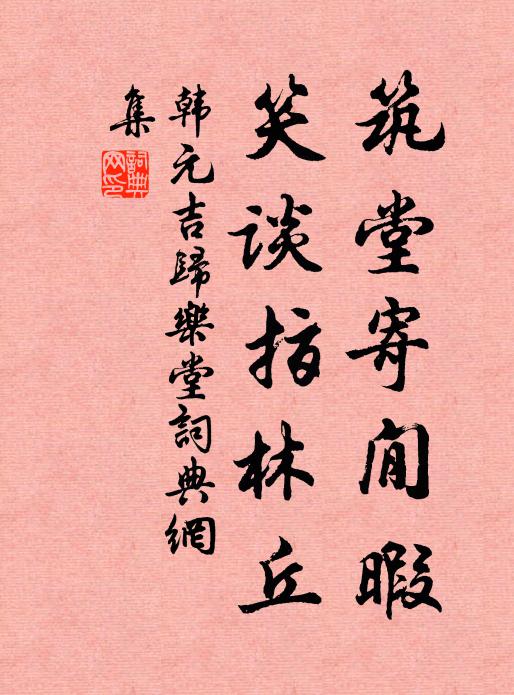 筑堂寄閒暇
笑談指林丘
韩元吉歸樂堂詞典網
集
詞典网印